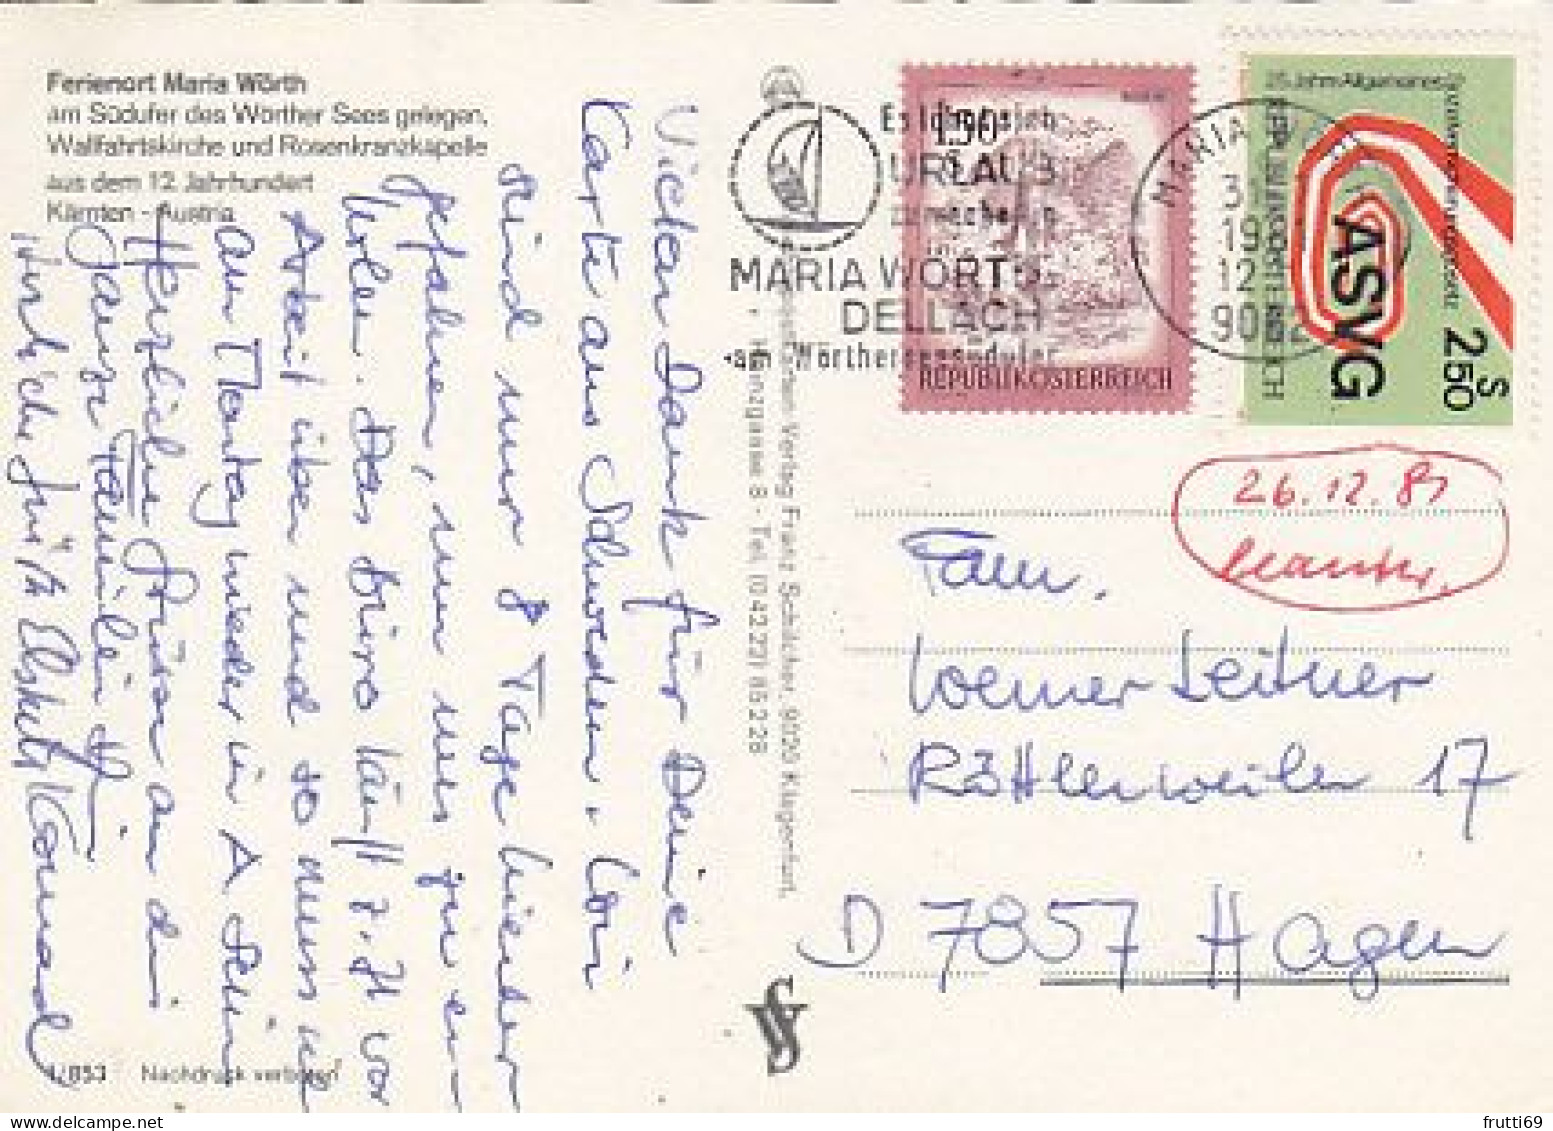 Ferienort Maria Wörth
am Südufer des Wörther Sees gelegen.
Wallfahrtskirche und Rosenkranzkapelle
aus dem 12. Jahrhundert
Kärnten - Austria
Vielen Dank für Deine
Karte aus Schweden. Wir
sind nur 8 Tage hierher
gefahren, um uns zu er
holen. Das Büro läuft z. Zt vor
Arbeit über und so muss ich
am Montag wieder in A sein
Herzliche Grüße an die
ganze Familie
herzliche Grüße Konrad
1/853 Nachdruck verboten
Verlag Franz Schilcher, 9020 Klagenfurt,
gasse 8 - Tel. (0 42 22) 85 2 28
Es lohnt sich
URLAUB
zu machen in
MARIA WÖRTH-
DELLACH
am Wörtherseesüdufer
1.50
REPUBLIK ÖSTERREICH
MARIA WÖRTH
12
9082
25 Jahre Allgemeines Sozialversicherungsgesetz
REPUBLIK ÖSTERREICH
ASVG
S 2.50
26.12.81
Fam.
Werner Leitner
Röttlerweiler 17
D 7857 Hagen
frutti69